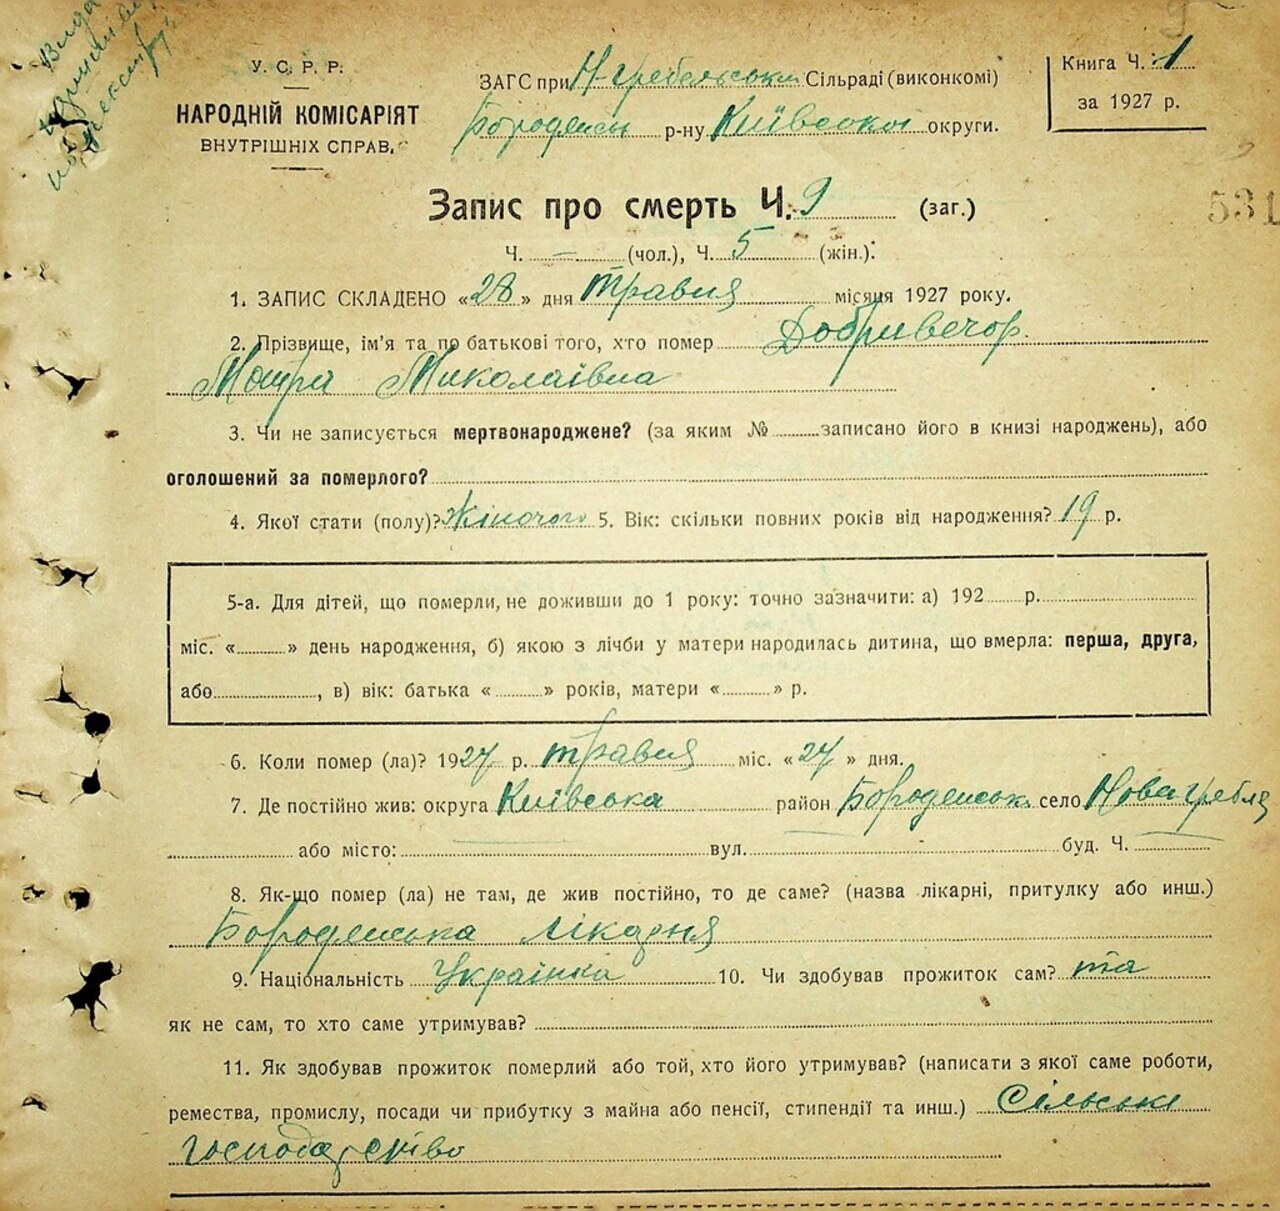 У. С. Р. Р.
НАРОДНІЙ КОМІСАРІЯТ
ВНУТРІШНІХ СПРАВ.
ЗАГС при Н-Гребельськ. Сільраді (виконкомі)
р-ну Київської округи.
Книга Ч. 1
за 1927 р.
531
Запис про смерть Ч. 9 (заг.)
Ч. – (чол.), Ч. 5 (жін.).
1. ЗАПИС СКЛАДЕНО «28» дня Травня місяця 1927 року.
2. Прізвище, ім'я та по батькові того, хто помер Добривечор.
Мотря Миколаївна
3. Чи не записується мертвонароджене? (за яким № записано його в книзі народжень), або
оголошений за померлого?
4. Якої стати (полу)? Жіночого 5. Вік: скільки повних років від народження? 19 р.
5-а. Для дітей, що померли, не доживши до 1 року: точно зазначити: а) 192 р.
міс. « » день народження, б) якою з лічби у матери народилась дитина, що вмерла: перша, друга,
або , в) вік: батька « » років, матери « » р.
6. Коли помер (ла)? 1927 р. травня міс. «27» дня.
7. Де постійно жив: округа Київська район Бородянськ. село Нова-Гребля
або місто: вул. буд. Ч.
8. Як-що помер (ла) не там, де жив постійно, то де саме? (назва лікарні, притулку або инш.)
Бородянська лікарня
9. Національність Українка 10. Чи здобував прожиток сам? та
як не сам, то хто саме утримував?
11. Як здобував прожиток померлий або той, хто його утримував? (написати з якої саме роботи,
ремества, промислу, посади чи прибутку з майна або пенсії, стипендії та инш.) Сільське
господарство